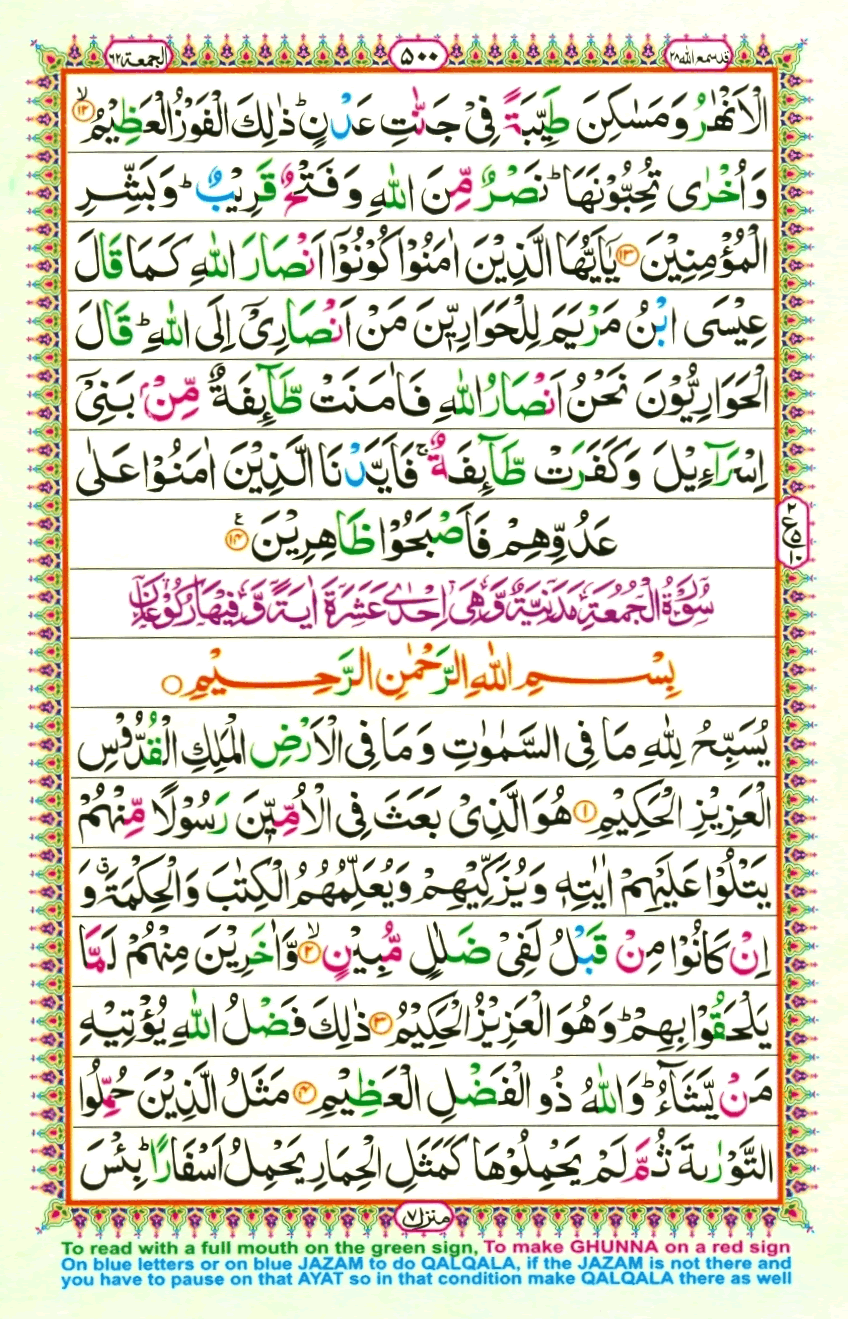 الجمعة ٦٢
٥٠٠
قد سمع الله ٢٨
الْاَنْهٰرُ وَمَسٰكِنَ طَيِّبَةً فِىْ جَنّٰتِ عَدْنٍ ؕ ذٰلِكَ الْفَوْزُ الْعَظِيْمُ ۙ ﴿۱۲﴾
وَاُخْرٰى تُحِبُّوْنَهَا ؕ نَصْرٌ مِّنَ اللّٰهِ وَفَتْحٌ قَرِيْبٌ ؕ وَبَشِّرِ
الْمُؤْمِنِيْنَ ﴿۱۳﴾ يٰۤاَيُّهَا الَّذِيْنَ اٰمَنُوْا كُوْنُوْۤا اَنْصَارَ اللّٰهِ كَمَا قَالَ
عِيْسَى ابْنُ مَرْيَمَ لِلْحَوَارِيّٖنَ مَنْ اَنْصَارِىْۤ اِلَى اللّٰهِ ؕ قَالَ
الْحَوَارِيُّوْنَ نَحْنُ اَنْصَارُ اللّٰهِ فَاٰمَنَتْ طَّآٮِٕفَةٌ مِّنْۢ بَنِىْۤ
اِسْرَآءِيْلَ وَكَفَرَتْ طَّآٮِٕفَةٌ ۚ فَاَيَّدْنَا الَّذِيْنَ اٰمَنُوْا عَلٰى
عَدُوِّهِمْ فَاَصْبَحُوْا ظَاهِرِيْنَ ﴿۱۴﴾ ع
٢
ع ٥
١٠
سُوْرَةُ الْجُمُعَةِ مَدَنِيَّةٌ وَّهِىَ اِحْدٰى عَشَرَةَ اٰيَةً وَّفِيْهَا رُكُوْعَانِ
بِسْمِ اللّٰهِ الرَّحْمٰنِ الرَّحِيْمِ ○
يُسَبِّحُ لِلّٰهِ مَا فِى السَّمٰوٰتِ وَمَا فِى الْاَرْضِ الْمَلِكِ الْقُدُّوْسِ
الْعَزِيْزِ الْحَكِيْمِ ﴿۱﴾ هُوَ الَّذِىْ بَعَثَ فِى الْاُمِّيّٖنَ رَسُوْلًا مِّنْهُمْ
يَتْلُوْا عَلَيْهِمْ اٰيٰتِهٖ وَيُزَكِّيْهِمْ وَيُعَلِّمُهُمُ الْكِتٰبَ وَالْحِكْمَةَ ۗ وَ
اِنْ كَانُوْا مِنْ قَبْلُ لَفِىْ ضَلٰلٍ مُّبِيْنٍ ۙ ﴿۲﴾ وَّاٰخَرِيْنَ مِنْهُمْ لَمَّا
يَلْحَقُوْا بِهِمْ ؕ وَهُوَ الْعَزِيْزُ الْحَكِيْمُ ﴿۳﴾ ذٰلِكَ فَضْلُ اللّٰهِ يُؤْتِيْهِ
مَنْ يَّشَآءُ ؕ وَاللّٰهُ ذُو الْفَضْلِ الْعَظِيْمِ ﴿۴﴾ مَثَلُ الَّذِيْنَ حُمِّلُوا
التَّوْرٰٮةَ ثُمَّ لَمْ يَحْمِلُوْهَا كَمَثَلِ الْحِمَارِ يَحْمِلُ اَسْفَارًا ؕ بِئْسَ
منزل ٧
To read with a full mouth on the green sign, To make GHUNNA on a red sign
On blue letters or on blue JAZAM to do QALQALA, if the JAZAM is not there and
you have to pause on that AYAT so in that condition make QALQALA there as well